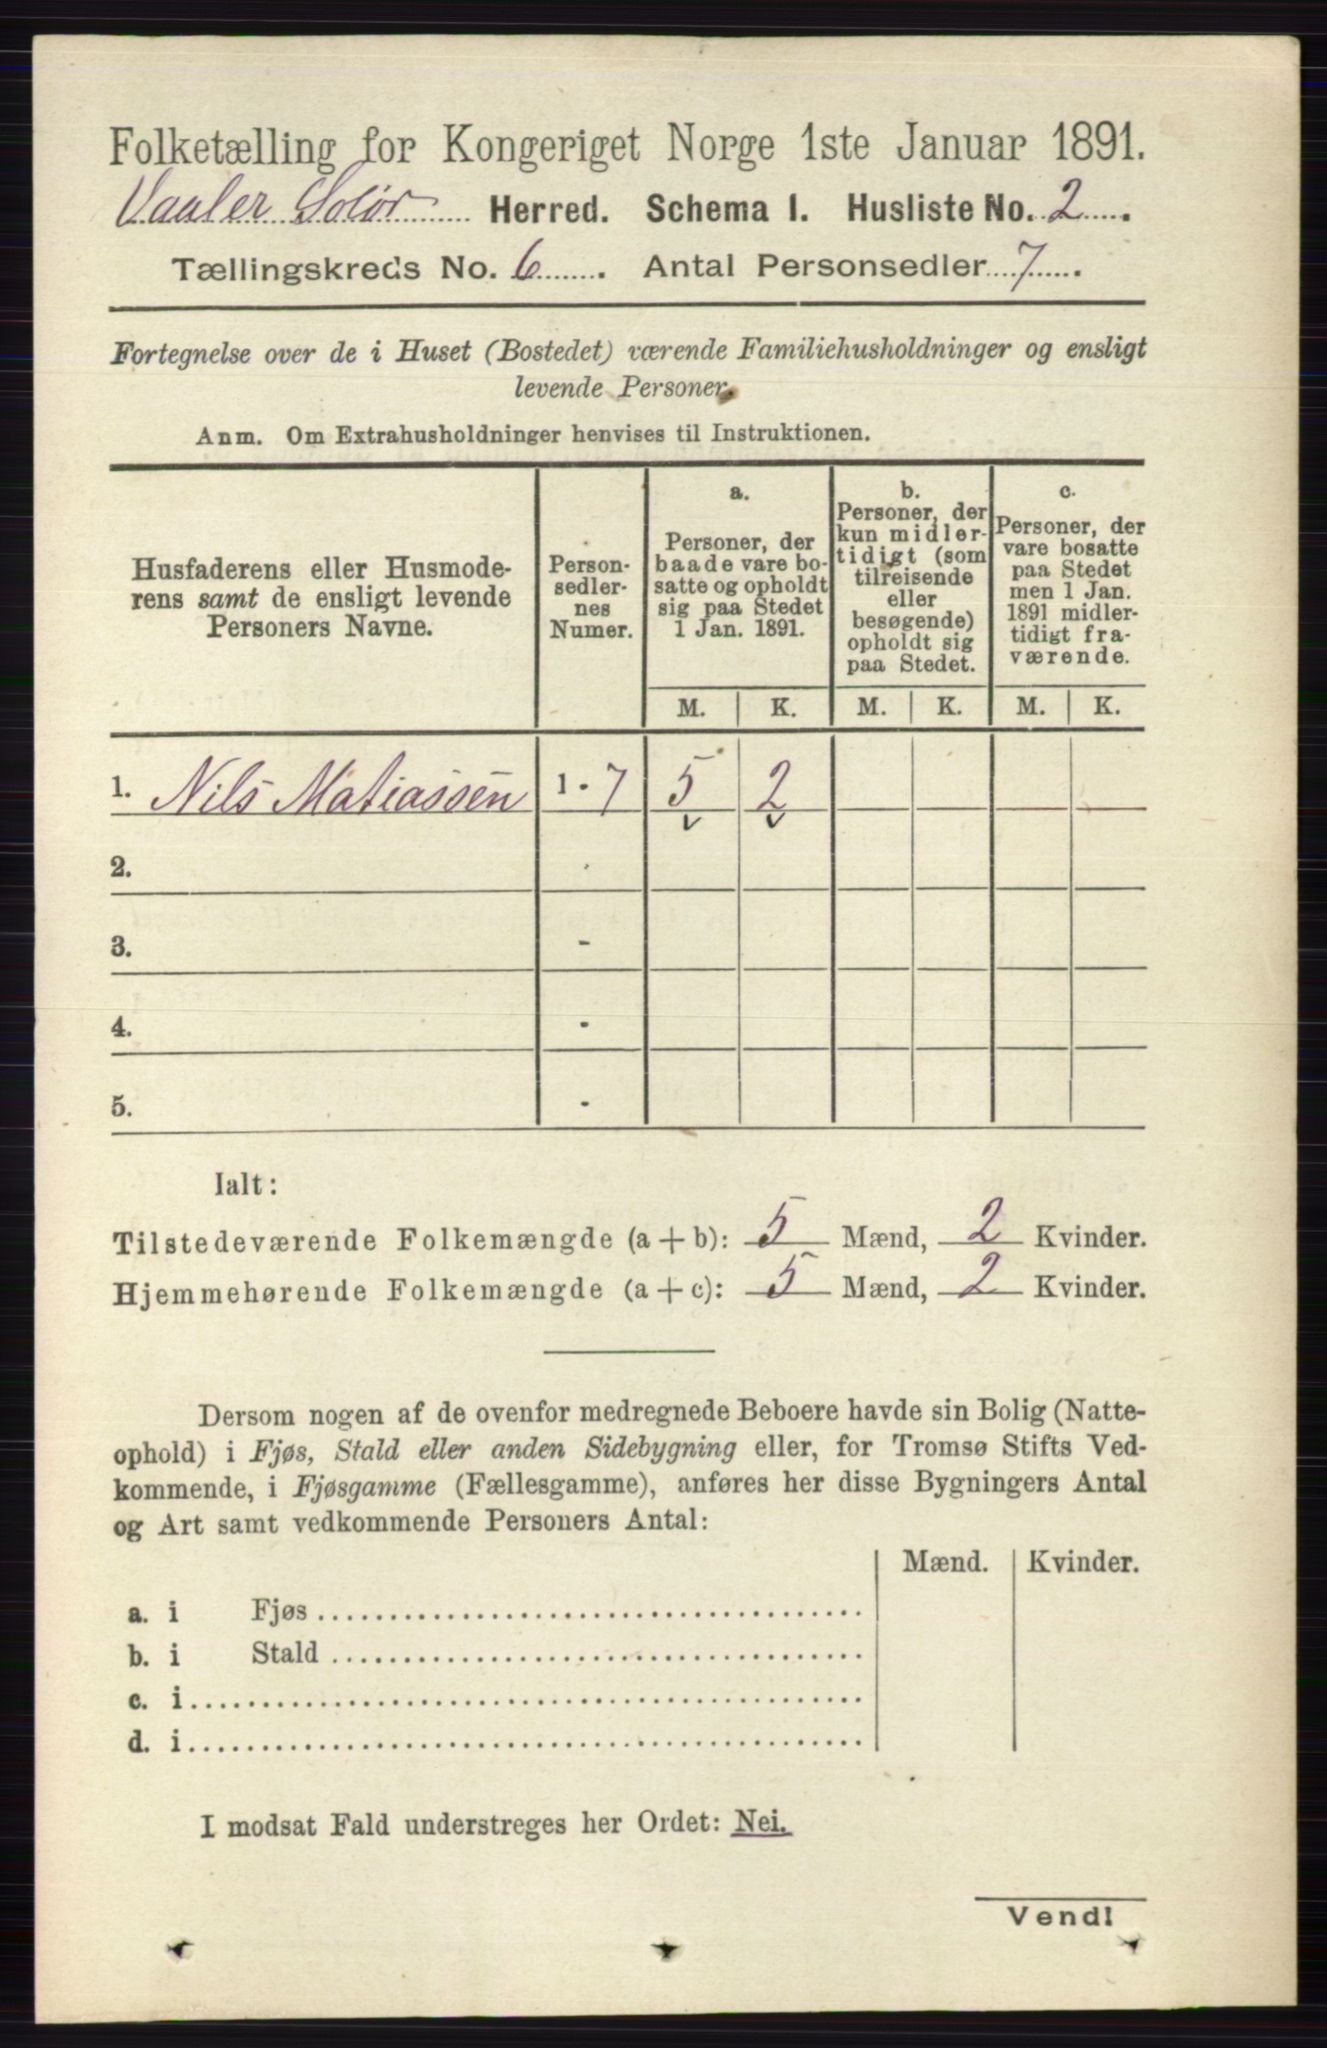 Folketælling for Kongeriget Norge 1ste Januar 1891.
Vaaler Solør Herred. Schema I. Husliste No. 2
Tællingskreds No. 6 . Antal Personsedler 7 .
Fortegnelse over de i Huset (Bostedet) værende Familiehusholdninger og ensligt
levende Personer.
Anm. Om Extrahusholdninger henvises til Instruktionen.
Husfaderens eller Husmode-
rens samt de ensligt levende
Personers Navne.
Person-
sedler-
nes
Numer.
a.
Personer, der
baade vare bo-
satte og opholdt
sig paa Stedet
1 Jan. 1891.
b.
Personer, der
kun midler-
tidigt (som
tilreisende
eller
besøgende)
opholdt sig
paa Stedet.
c.
Personer, der
vare bosatte
paa Stedet
men 1 Jan.
1891 midler-
tidigt fra-
værende.
M. K. M. K. M. K.
1. Nils Matiassen 1 - 7 5 2
2.
3. -
4. -
5. -
Ialt:
Tilstedeværende Folkemængde (a + b): 5 Mænd, 2 Kvinder.
Hjemmehørende Folkemængde (a + c): 5 Mænd, 2 Kvinder.
Dersom nogen af de ovenfor medregnede Beboere havde sin Bolig (Natte-
ophold) i Fjøs, Stald eller anden Sidebygning eller, for Tromsø Stifts Ved-
kommende, i Fjøsgamme (Fællesgamme), anføres her disse Bygningers Antal
og Art samt vedkommende Personers Antal:
Mænd. Kvinder.
a. i Fjøs
b. i Stald
c. i
d. i
I modsat Fald understreges her Ordet: Nei.
Vend!